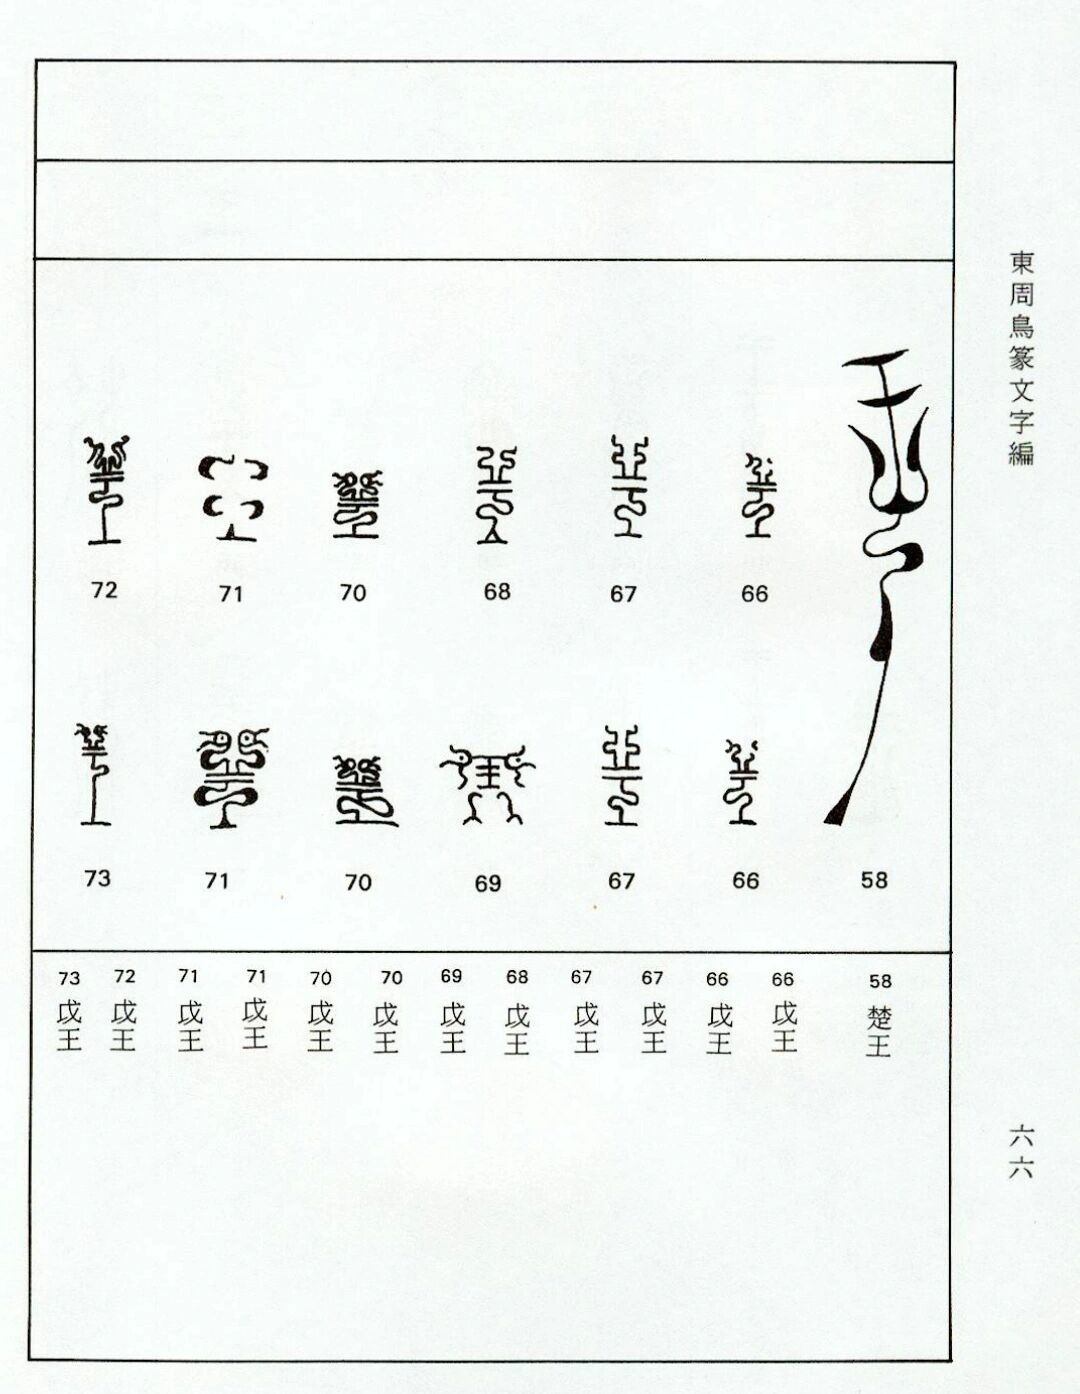 東周鳥篆文字編
六六
58
66
66
67
67
68
69
70
70
71
71
72
73
58 楚王
66 戉王
66 戉王
67 戉王
67 戉王
68 戉王
69 戉王
70 戉王
70 戉王
71 戉王
71 戉王
72 戉王
73 戉王